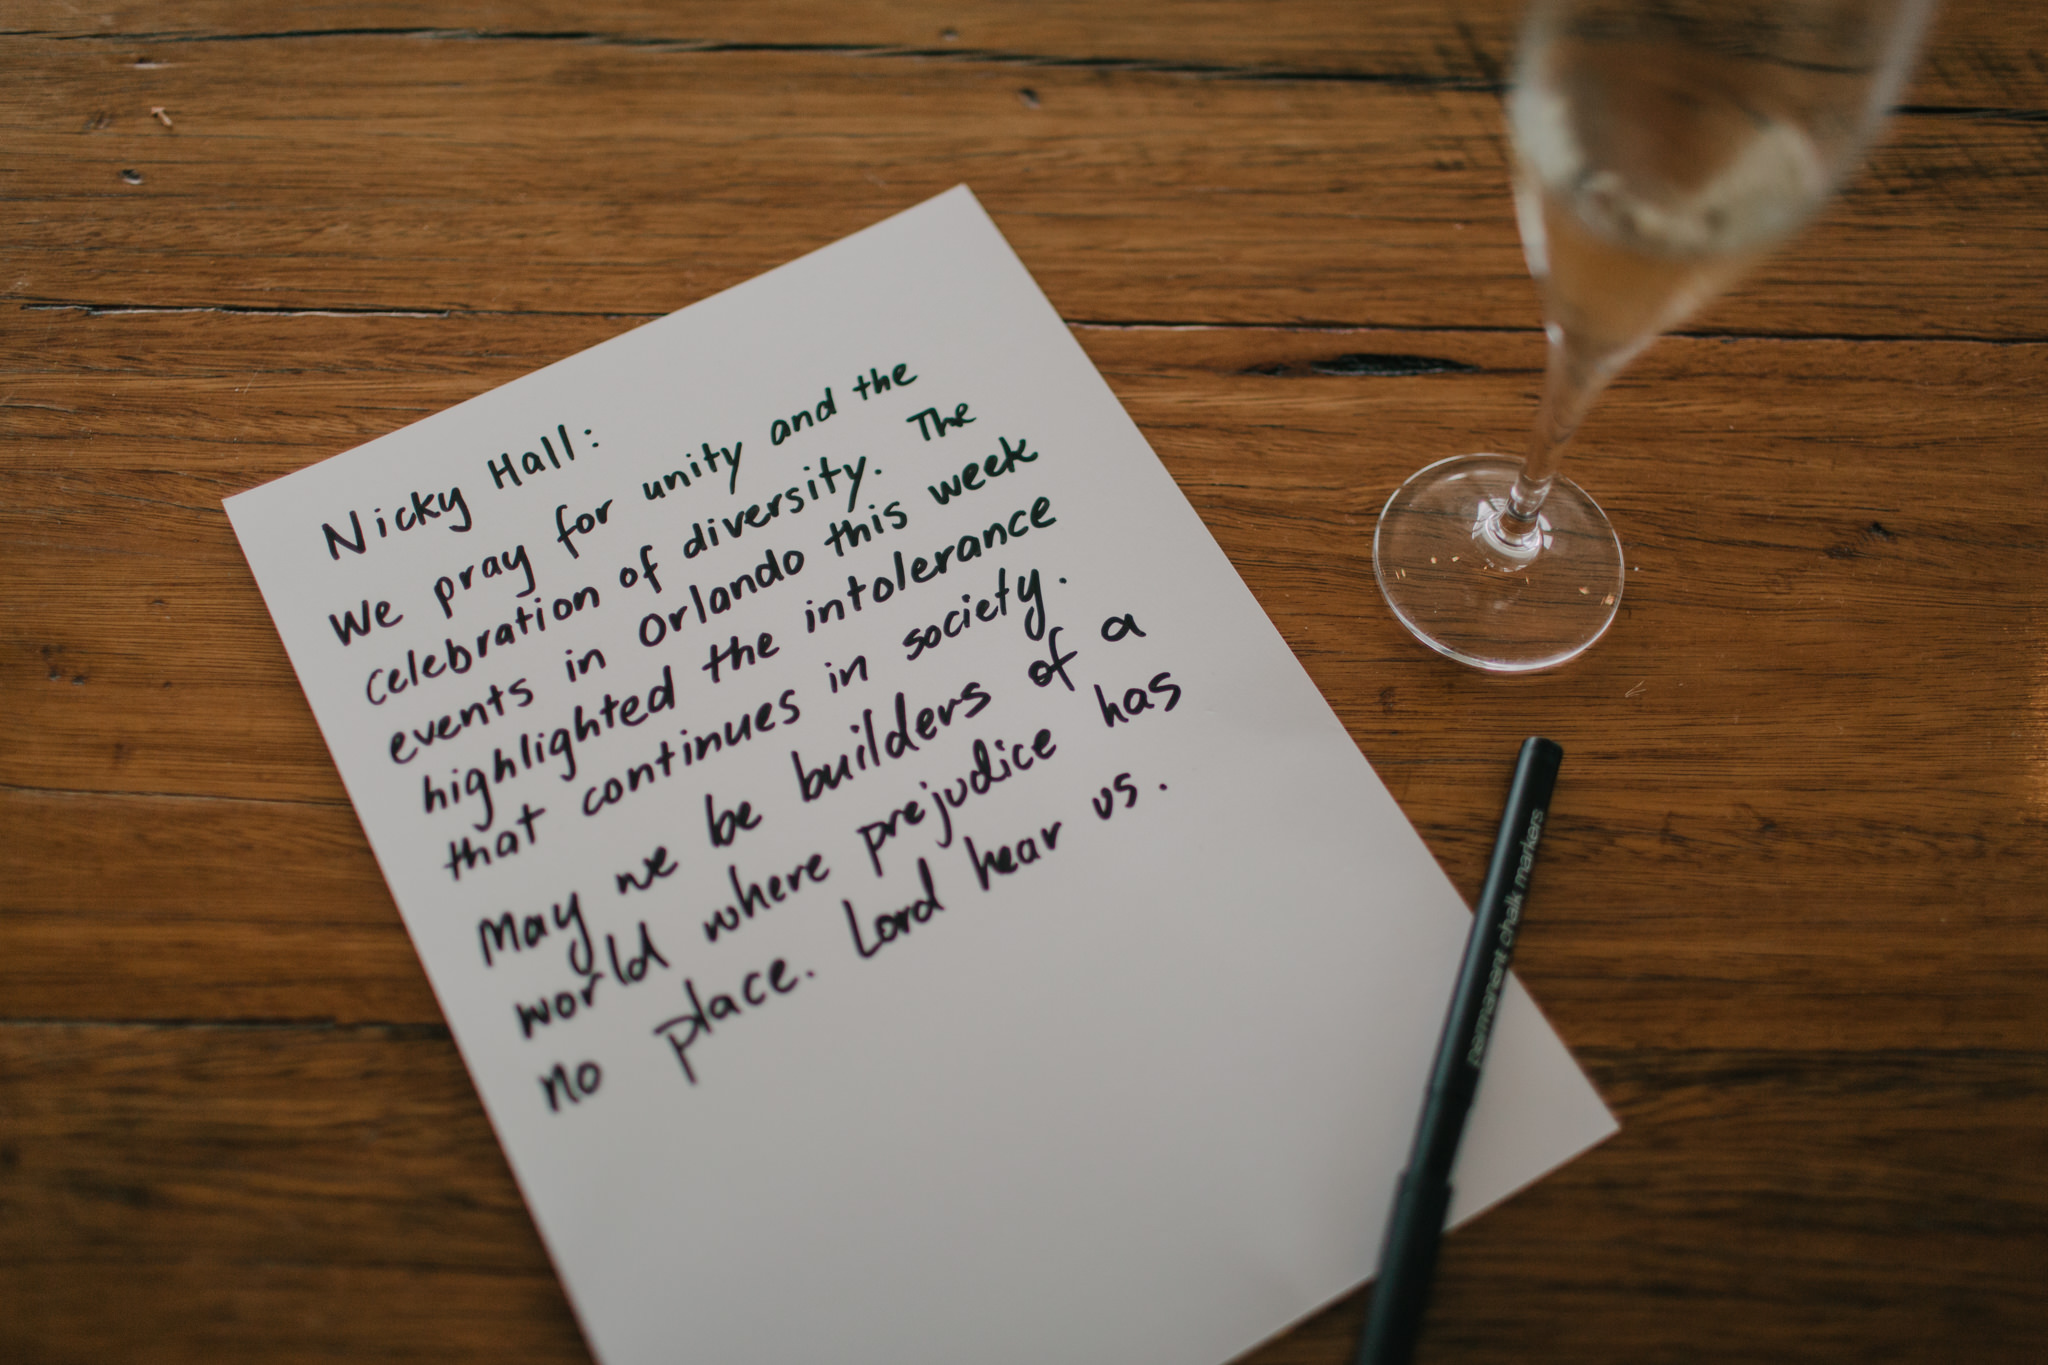 Nicky Hall:
We pray for unity and the
celebration of diversity. The
events in Orlando this week
highlighted the intolerance
that continues in society.
May we be builders of a
world where prejudice has
no place. Lord hear us.
permanent chalk markers